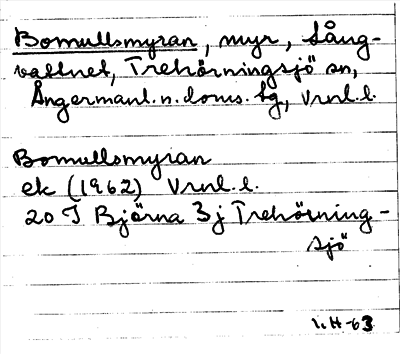 Bomullsmyran, myr, Lång-
vattnet, Trehörningsjö sn,
Ångermanl. n. doms. tg, Vrnl. l.
Bomullsmyran
ek (1962) Vrnl. l.
20 I Björna 3j Trehörning-
sjö
V.H-63